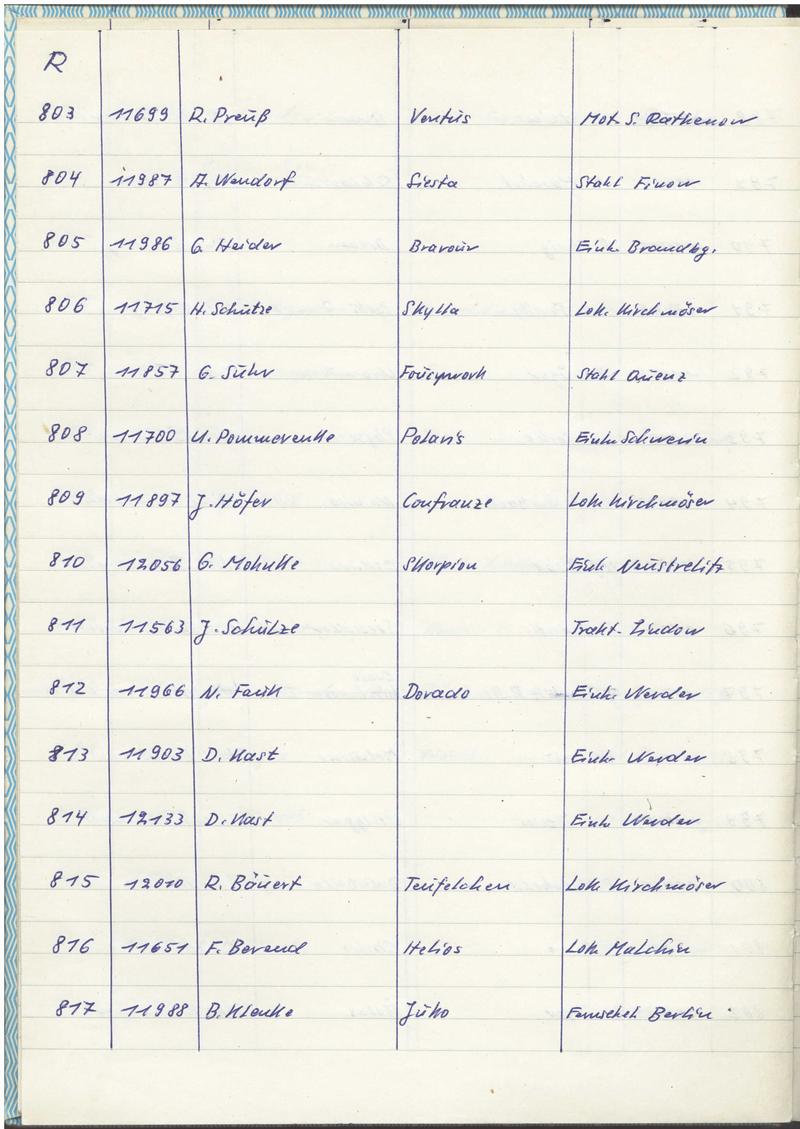 R
803 11699 R. Preuß Ventus Mot. S. Rathenow
804 11987 A. Wendorf Siesta Stahl Finow
805 11986 G. Heider Bravour Einh. Brandbg.
806 11715 H. Schütze Skylla Lok. Kirchmöser
807 11857 G. Suhr Stahl Quenz
808 11700 U. Pommerenke Polaris Einh. Schwerin
809 11897 J. Höfer Confranze Lok Kirchmöser
810 12056 G. Mohnke Skorpion Einh. Neustrelitz
811 11563 J. Schulze Trakt. Lindow
812 11966 N. Fank Dorado Einh. Werder
813 11903 D. Kast Einh. Werder
814 12133 D. Kast Einh. Werder
815 12010 R. Bäuert Teufelchen Lok Kirchmöser
816 11651 F. Berend Helios Lok Malchin
817 11988 B. Klenke Juko Fernseheh Berlin